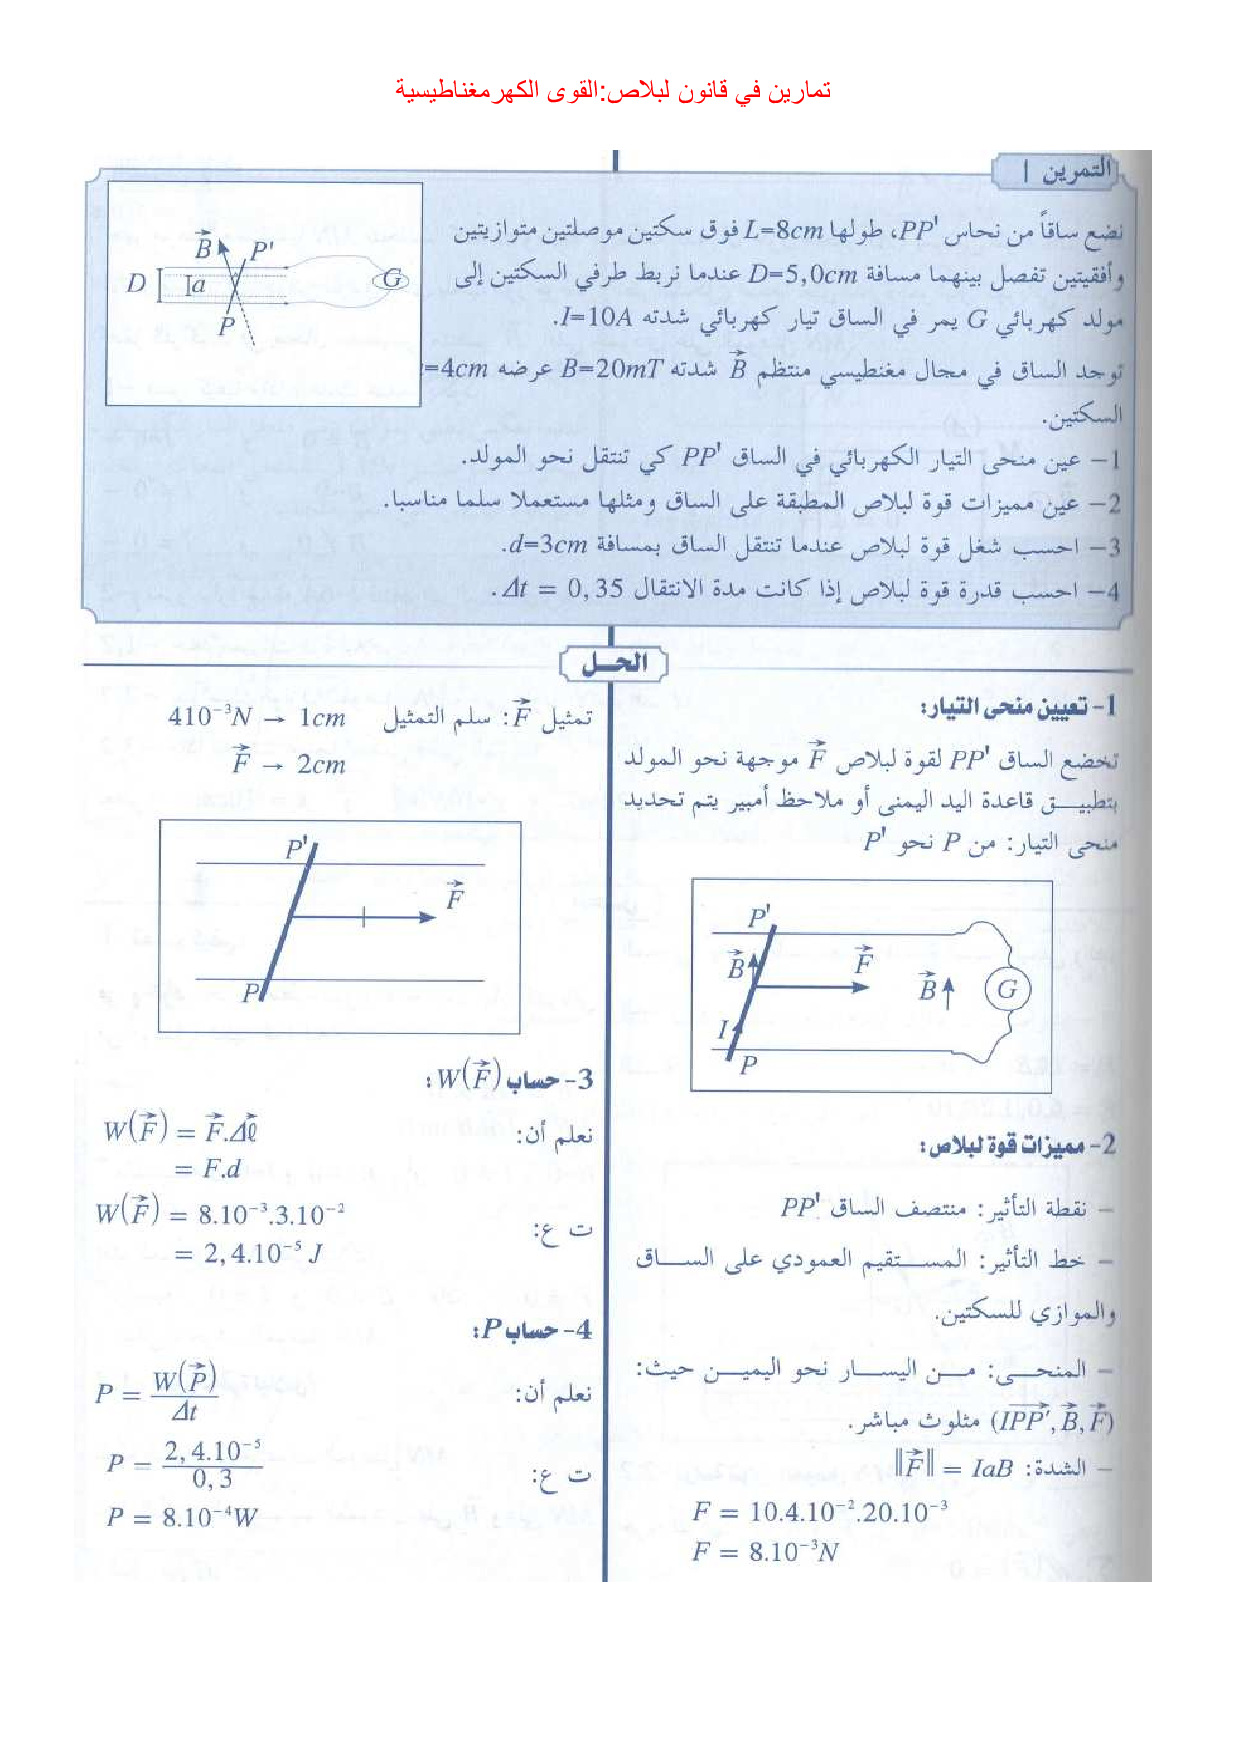 تمارين في قانون لبلاص:القوى الكهرمغناطيسية
التمرين 1
نضع ساقاً من نحاس 'PP، طولها L=8cm فوق سكتين موصلتين متوازيتين
وأفقيتين تفصل بينهما مسافة D=5,0cm عندما نربط طرفي السكتين إلى
مولد كهربائي G يمر في الساق تيار كهربائي شدته I=10A.
توجد الساق في مجال مغنطيسي منتظم B⃗ شدته B=20mT عرضه =4cm
السكتين.
1- عين منحى التيار الكهربائي في الساق 'PP كي تنتقل نحو المولد.
2- عين مميزات قوة لبلاص المطبقة على الساق ومثلها مستعملا سلما مناسبا.
3- احسب شغل قوة لبلاص عندما تنتقل الساق بمسافة d=3cm.
4- احسب قدرة قوة لبلاص إذا كانت مدة الانتقال Δt = 0,35.
B⃗ P'
D a G
P
الحل
1- تعيين منحى التيار:
تخضع الساق 'PP لقوة لبلاص F⃗ موجهة نحو المولد
بتطبيق قاعدة اليد اليمنى أو ملاحظ أمبير يتم تحديد
منحى التيار: من P نحو 'P
P'
B⃗ F⃗ B⃗ G
I
P
2- مميزات قوة لبلاص:
- نقطة التأثير: منتصف الساق 'PP.
- خط التأثير: المستقيم العمودي على الساق
والموازي للسكتين.
- المنحى: من اليسار نحو اليمين حيث:
(IPP'⃗, B⃗, F⃗) مثلوث مباشر.
- الشدة: ‖F⃗‖ = IaB
F = 10.4.10⁻².20.10⁻³
F = 8.10⁻³N
تمثيل F⃗: سلم التمثيل 410⁻³N → 1cm
F⃗ → 2cm
P'
F⃗
P
3- حساب W(F⃗):
نعلم أن: W(F⃗) = F⃗.Δℓ⃗
= F.d
ت ع: W(F⃗) = 8.10⁻³.3.10⁻²
= 2,4.10⁻⁵ J
4- حساب P:
نعلم أن: P = W(P⃗)/Δt
ت ع: P = 2,4.10⁻⁵/0,3
P = 8.10⁻⁴W